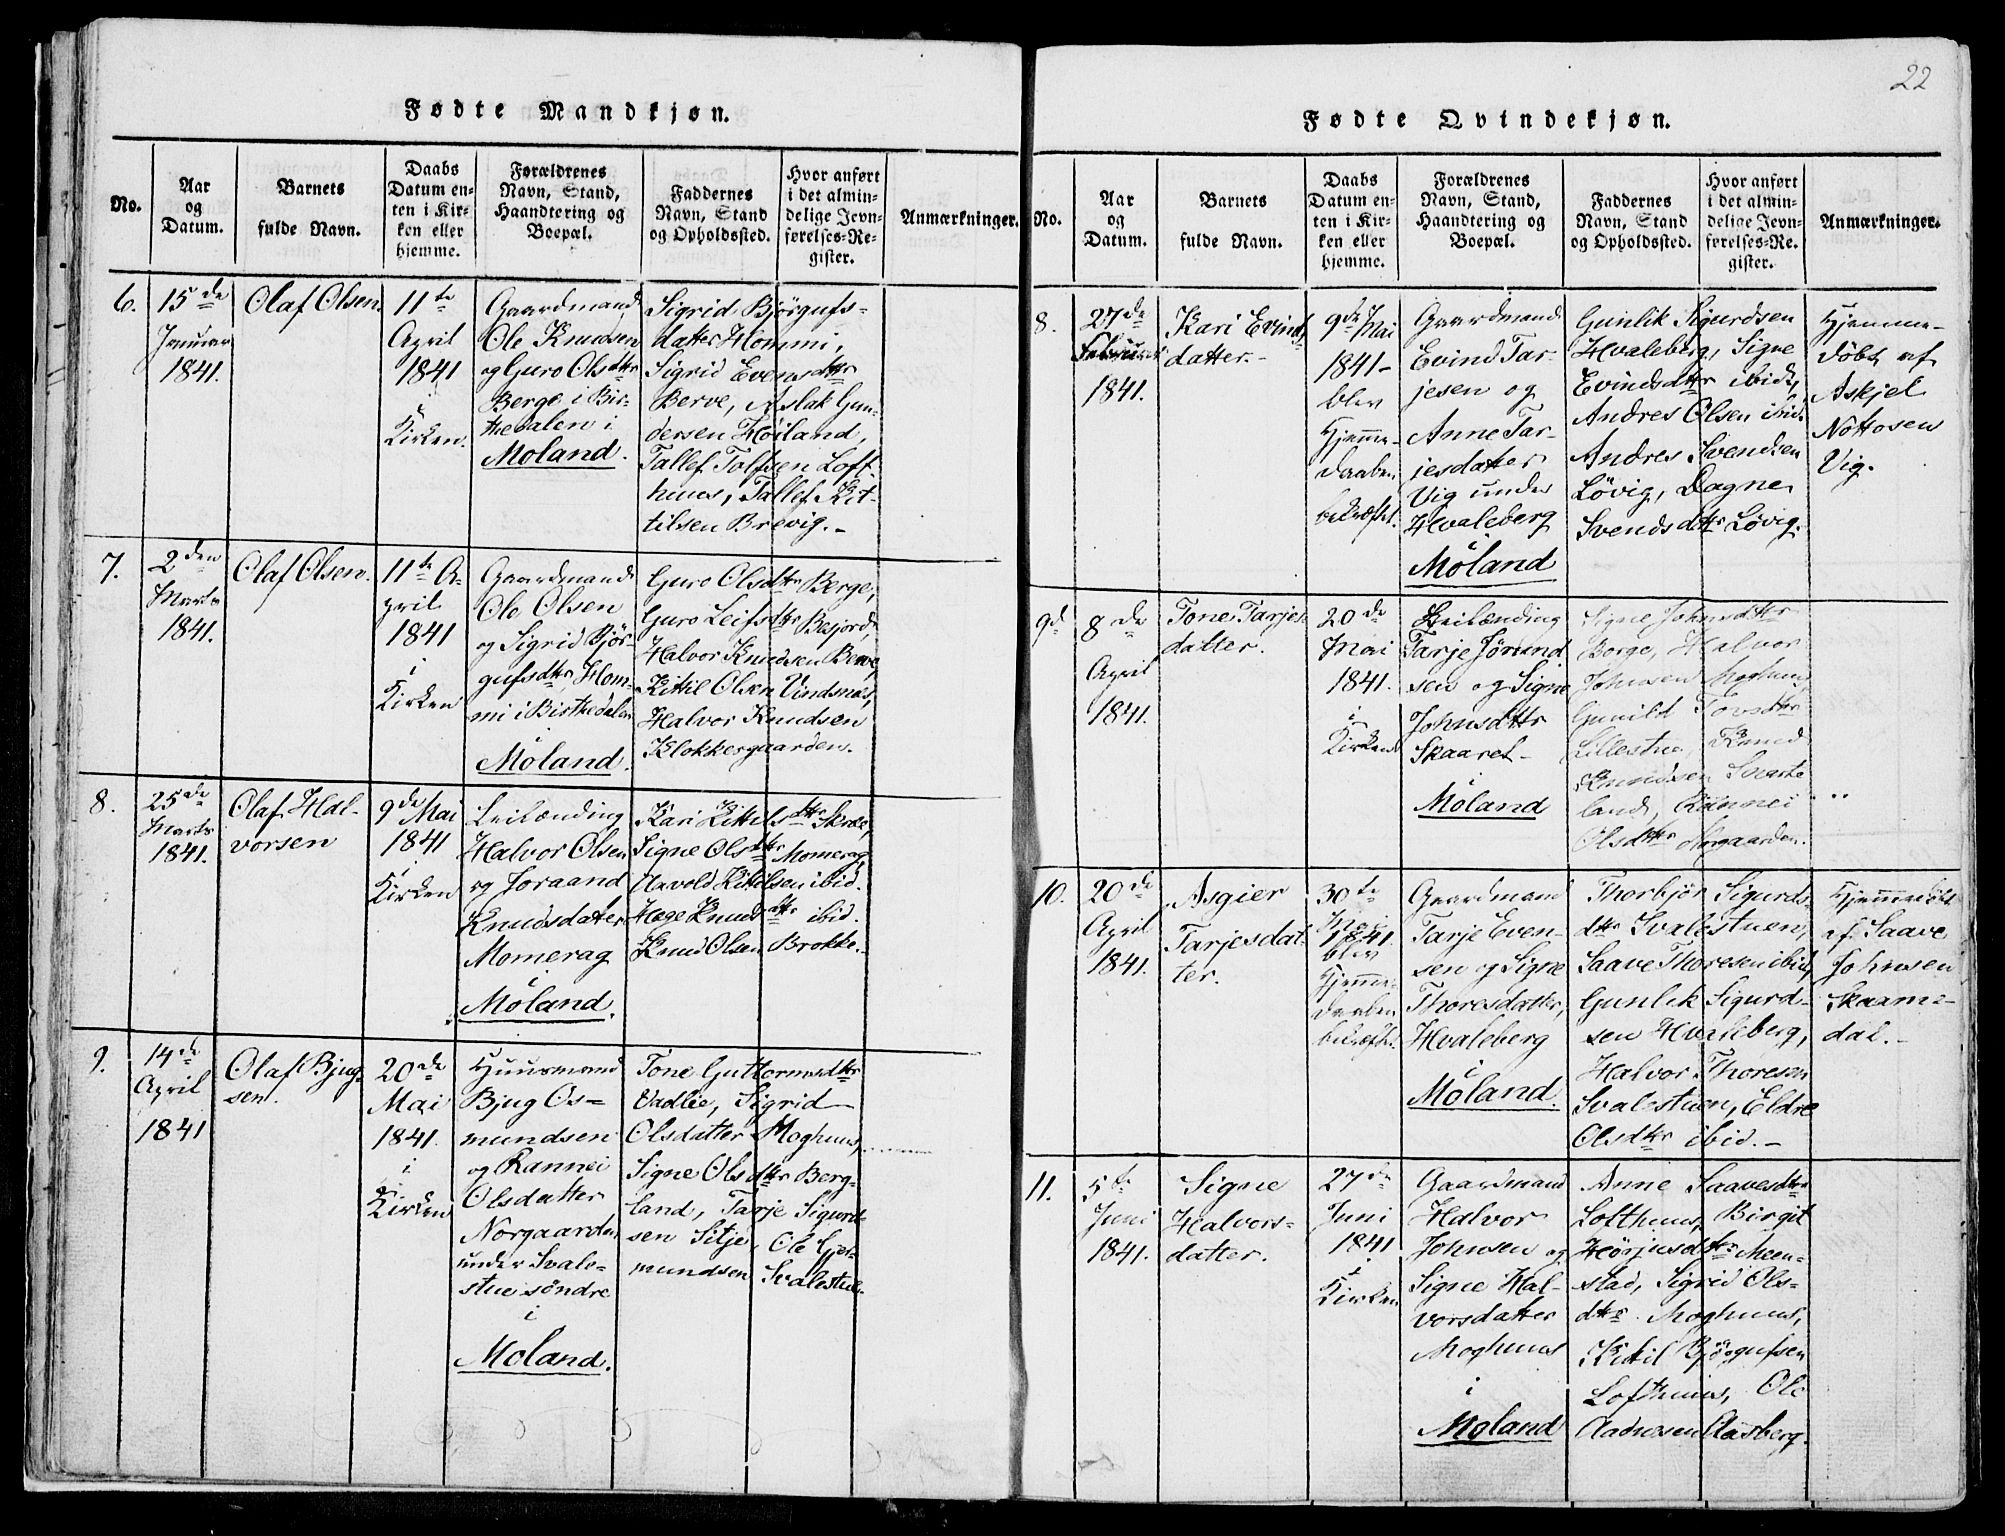 22
Fødte Mandkjøn.
No.
Aar
og
Datum.
Barnets
fulde Navn.
Daabs
Datum en-
ten i Kir-
ken eller
hjemme.
Forældrenes
Navn, Stand,
Haandtering og
Boepæl.
Faddernes
Navn, Stand
og Opholdssted.
Hvor anført
i det almin-
delige Jevn-
førelses-Re-
gister.
Anmærkninger.
6.
15de
Januar
1841.
Olaf Olsen.
11te
April
1841
i
Kirken.
Gaardmand
Ole Knudsen
og Guro Olsdttr
Berge i Bir-
thedalen i
Moland.
Sigrid Bjørgufs-
datter Hommi,
Sigrid Evensdttr
Berve, Aslak Gun-
dersen Høiland,
Tallef Tolfsen Loft-
huus, Tallef Kit-
tilsen Brevig.-
7.
2den
Marts
1841.
Olaf Olsen.
11te A-
pril
1841
i
Kirken
Gaardmand
Ole Olsen
og Sigrid Bjør-
gufsdttr Hom-
mi i Birthedalen
i
Moland.
Guro Olsdttr Berge,
Guro Leifsdttr Besjord,
Halvor Knudsen Berve,
Kittil Olsen Vindsnæs,
Halvor Knudsen
Klokkergaarden.
8.
25de
Marts
1841.
Olaf Hal-
vorsen
9de Mai
1841
i
Kirken
Leilænding
Halvor Olsen
og Joraand
Knudsdatter
Momerag
i
Moland.
Kari Kittilsdttr Skræ,
Signe Olsdttr Momerag,
Havold Kittilsen ibid.
Hæge Knudsdttr ibid.
Knud Olsen Brokke.
9.
14de
April
1841
Olaf Bjug-
sen.
20de
Mai
1841.
i
Kirken
Huusmand
Bjug Os-
mundsen
og Rannei
Olsdatter
Norgaarden
under Svale-
stue søndre
i
Moland.
Tone Guttormsdttr
Vadlie, Sigrid
Olsdatter Moghuus,
Signe Olsdttr Berg-
land, Tarje Sigurd-
sen Sitje, Ole Gjer-
mundsen Svalestue.
Fødte Qvindekjøn.
No.
Aar
og
Datum.
Barnets
fulde Navn.
Daabs
Datum en-
ten i Kir-
ken eller
hjemme.
Forældrenes
Navn, Stand,
Haandtering og
Boepæl.
Faddernes
Navn, Stand
og Opholdssted.
Hvor anført
i det almin-
delige Jevn-
førelses-Re-
gister.
Anmærkninger.
8.
27de
Februar
1841.
Kari Evinds
datter.-
9de Mai
1841-
blev
Hjemme-
daaben
bekræftet.
Gaardmand
Evind Tar-
jesen og
Anne Tar-
jesdatter
Vig under
Hvaleberg
i
Moland
Gunlik Sigurdsen
Hvaleberg, Signe
Evindsdttr ibid,
Andres Olsen ibid.
Andres Svendsen
Løvig, Dagne
Svendsdttr Løvig.
Hjemme-
døbt af
Askjel
Nottosen
Vig.
9d
8de
April
1841.
Tone Tarjes
datter.
20de
Mai
1841.
i
Kirken
Leilænding
Tarje Jørund
sen og Signe
Johnsdttr
Skaaret-
i
Moland
Signe Johnsdttr
Borge, Halvor
Johnsen Moghuus,
Gunild Tovsdttr
Lillestue, Knud
Knudsen Svarte
land, Rannei
Olsdttr Norgaarden.
10.
20de
April
1841.
Asgier
Tarjesdat-
ter.
30te
Mai
1841.
blev
Hjemme-
daaben
bekræftet.
Gaardmand
Tarje Even-
sen og Signe
Thoresdatter,
Hvaleberg
i
Moland.
Thorbjør Sigurds-
dttr Svalestuen,
Saave Thoresen ibid,
Gunlik Sigurd-
sen Hvaleberg,
Halvor Thoresen
Svalestuen, Eldre
Olsdttr ibid.-
Hjemmedøbt
af Saave
Johnsen
Skaam-
dal.-
11.
5te
Juni
1841.
Signe
Halvors-
datter.
27de
Juni
1841
i
Kirken
Gaardmand
Halvor
Johnsen og
Signe Hal-
vorsdatter
Moghuus
i
Moland
Anne Saavesdttr
Lofthuus, Birgit
Hørjusdttr Meen-
stad, Sigrid Ols-
dttr Moghuus,
Kittil Bjørgufsen
Lofthuus, Ole
Aadnesen Aasberg.